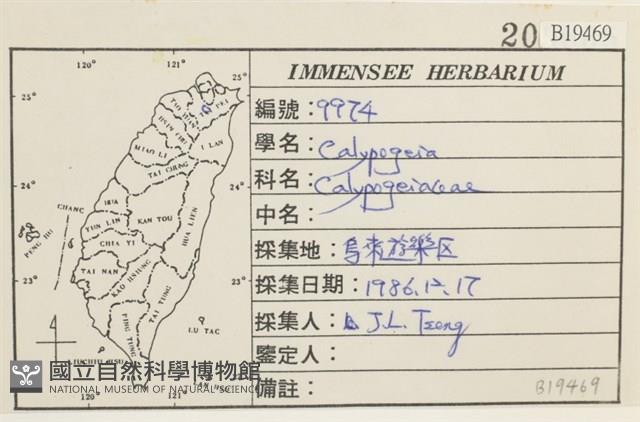 20 B19469
IMMENSEE HERBARIUM
編號：9974
學名：Calypogeia
科名：Calypogeiaceae
中名：
採集地：烏來遊樂区
採集日期：1986.12.17
採集人：J.L. Tseng
鑒定人：
備註：
B19469
120° 121°
25° 25°
24° 24°
23° 23°
120° 121°
I LAN
MIAO LI
TAI CHUNG
CHANG
HUA
NAN TOU
YUN LIN
HUA LIEN
PENG HU
CHIA YI
TAI NAN
KAO HSIUNG
TAI TUNG
PING TUNG
LU TAO
LIUCHIU HSU
國立自然科學博物館
NATIONAL MUSEUM OF NATURAL SCIENCE